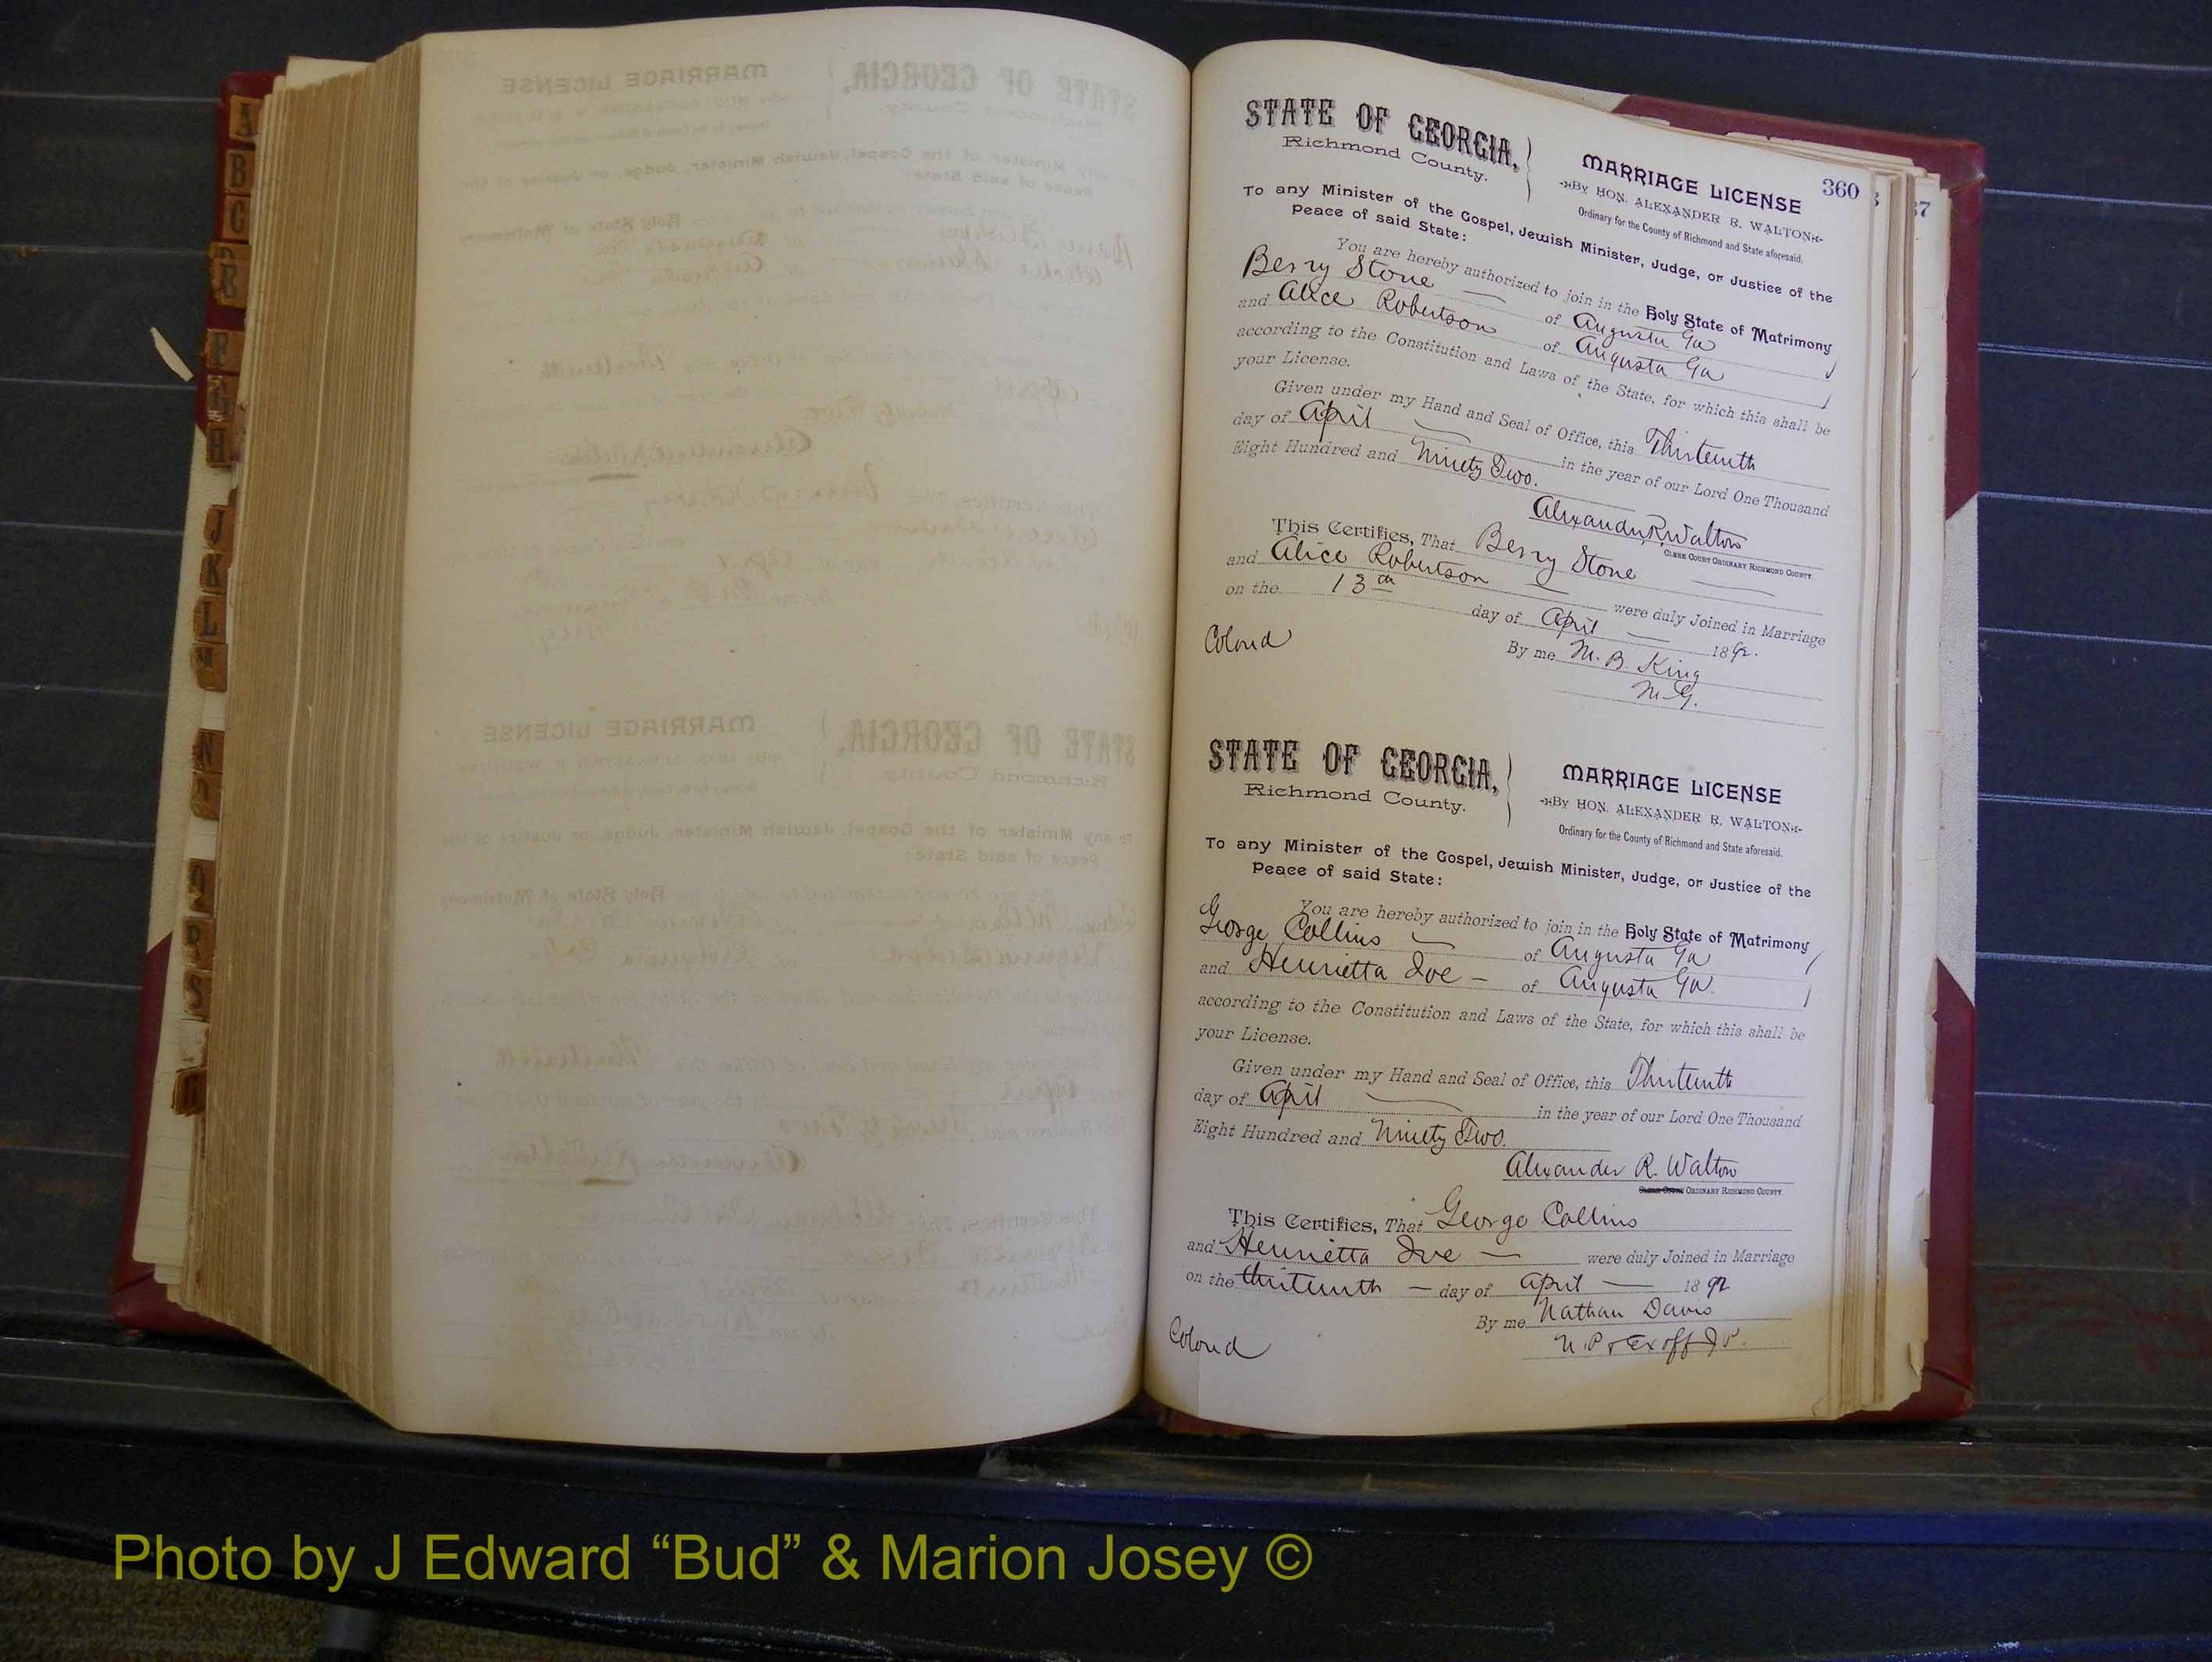 A
B
C
F
G
H
J
K
L
M
N
Q
R
S
360
STATE OF GEORGIA,
Richmond County.
MARRIAGE LICENSE
By HON. ALEXANDER R. WALTON
Ordinary for the County of Richmond and State aforesaid.
To any Minister of the Gospel, Jewish Minister, Judge, or Justice of the
Peace of said State:
You are hereby authorized to join in the Holy State of Matrimony
Berry Stone of Augusta Ga
and Alice Robertson of Augusta Ga
according to the Constitution and Laws of the State, for which this shall be
your License.
Given under my Hand and Seal of Office, this Thirteenth
day of April in the year of our Lord One Thousand
Eight Hundred and Ninety Two.
Alexander R. Walton
CLERK COURT ORDINARY RICHMOND COUNTY
This Certifies, That Berry Stone
and Alice Robertson were duly Joined in Marriage
on the 13th day of April 1892.
By me M. B. King
M. G.
Colored
STATE OF GEORGIA,
Richmond County.
MARRIAGE LICENSE
By HON. ALEXANDER R. WALTON
Ordinary for the County of Richmond and State aforesaid.
To any Minister of the Gospel, Jewish Minister, Judge, or Justice of the
Peace of said State:
You are hereby authorized to join in the Holy State of Matrimony
George Collins of Augusta Ga
and Henrietta Ive of Augusta Ga.
according to the Constitution and Laws of the State, for which this shall be
your License.
Given under my Hand and Seal of Office, this Thirteenth
day of April in the year of our Lord One Thousand
Eight Hundred and Ninety Two.
Alexander R. Walton
ORDINARY RICHMOND COUNTY
This Certifies, That George Collins
and Henrietta Ive were duly Joined in Marriage
on the thirteenth day of April 1892
By me Nathan Davis
N. P & Ex off J P.
Colored
Photo by J Edward “Bud” & Marion Josey ©